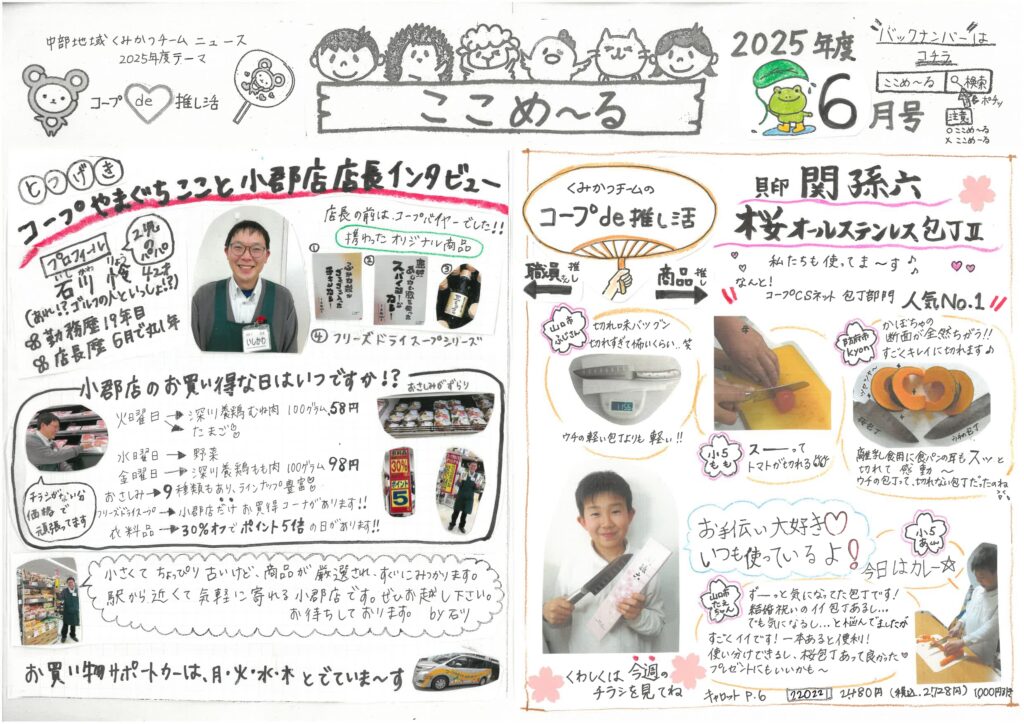 中部地域くみかつチーム ニュース
2025年度テーマ
コープ de 推し活
ここめ～る
2025年度
6月号
バックナンバーは
コチラ
ここめ～る 検索
ポチッ
注意
○ここめ～る
×ここめーる
とつげき
コープやまぐちここと小郡店店長インタビュー
プロフィール
2児のパパ
いしかわ りょう
石川 42才
(あれ!?ゴルフの人といっしょ!?)
勤務歴19年目
店長歴 6月で丸1年
いしかわ
店長の前は、コープバイヤーでした!!
携わったオリジナル商品
①
②
③
④フリーズドライスープシリーズ
小郡店のお買い得な日はいつですか!?
火曜日→深川養鶏むね肉 100グラム58円
たまご
水曜日→野菜
金曜日→深川養鶏もも肉 100グラム98円
おさしみ→9種類もあり、ラインナップ豊富
フリーズドライスープ→小郡店だけお買得コーナーがあります!!
衣料品→30%オフでポイント5倍の日があります!!
おさしみがずらり
30%
ポイント
5
チラシがない分
価格で
頑張ってます
小さくてちょっぴり古いけど、商品が厳選され、すぐにみつかります。
駅から近くて気軽に寄れる小郡店です。ぜひお越し下さい。
お待ちしております。 by石ツ
お買い物サポートカーは、月・火・水・木とでていま～す
くみかつチームの
コープde推し活
職員さん推し
商品推し
貝印 関孫六
桜オールステンレス包丁Ⅱ
私たちも使ってま～す♪
なんと!
コープCSネット 包丁部門 人気No.1!!
山口市
ふじさん
切れ味バツグン
切れすぎて怖いくらい..笑
ウチの軽い包丁よりも軽い!!
小5
もも
スーーって
トマトが切れる
防府市
kyon
かぼちゃの
断面が全然ちがう!!
すごくキレイに切れます♪
桜包丁
ウチの包丁
離乳食用に食パンの耳もスッと
切れて感動～
ウチの包丁って、切れない包丁だったのね
お手伝い大好き♡
いつも使っているよ!
小5
あん
今日はカレー☆
山口市
たえちゃん
ず～っと気になってた包丁です!
結婚祝いのイイ包丁あるし...
でも気になるし...と悩んでましたが
すごくイイです!一本あると便利!
使い分けできるし、桜包丁あって良かった
プレゼントにもいいかも～
くわしくは今週の
チラシを見てね
キャロット P.6 22022 2480円(税込2,728円) 1,000円引き